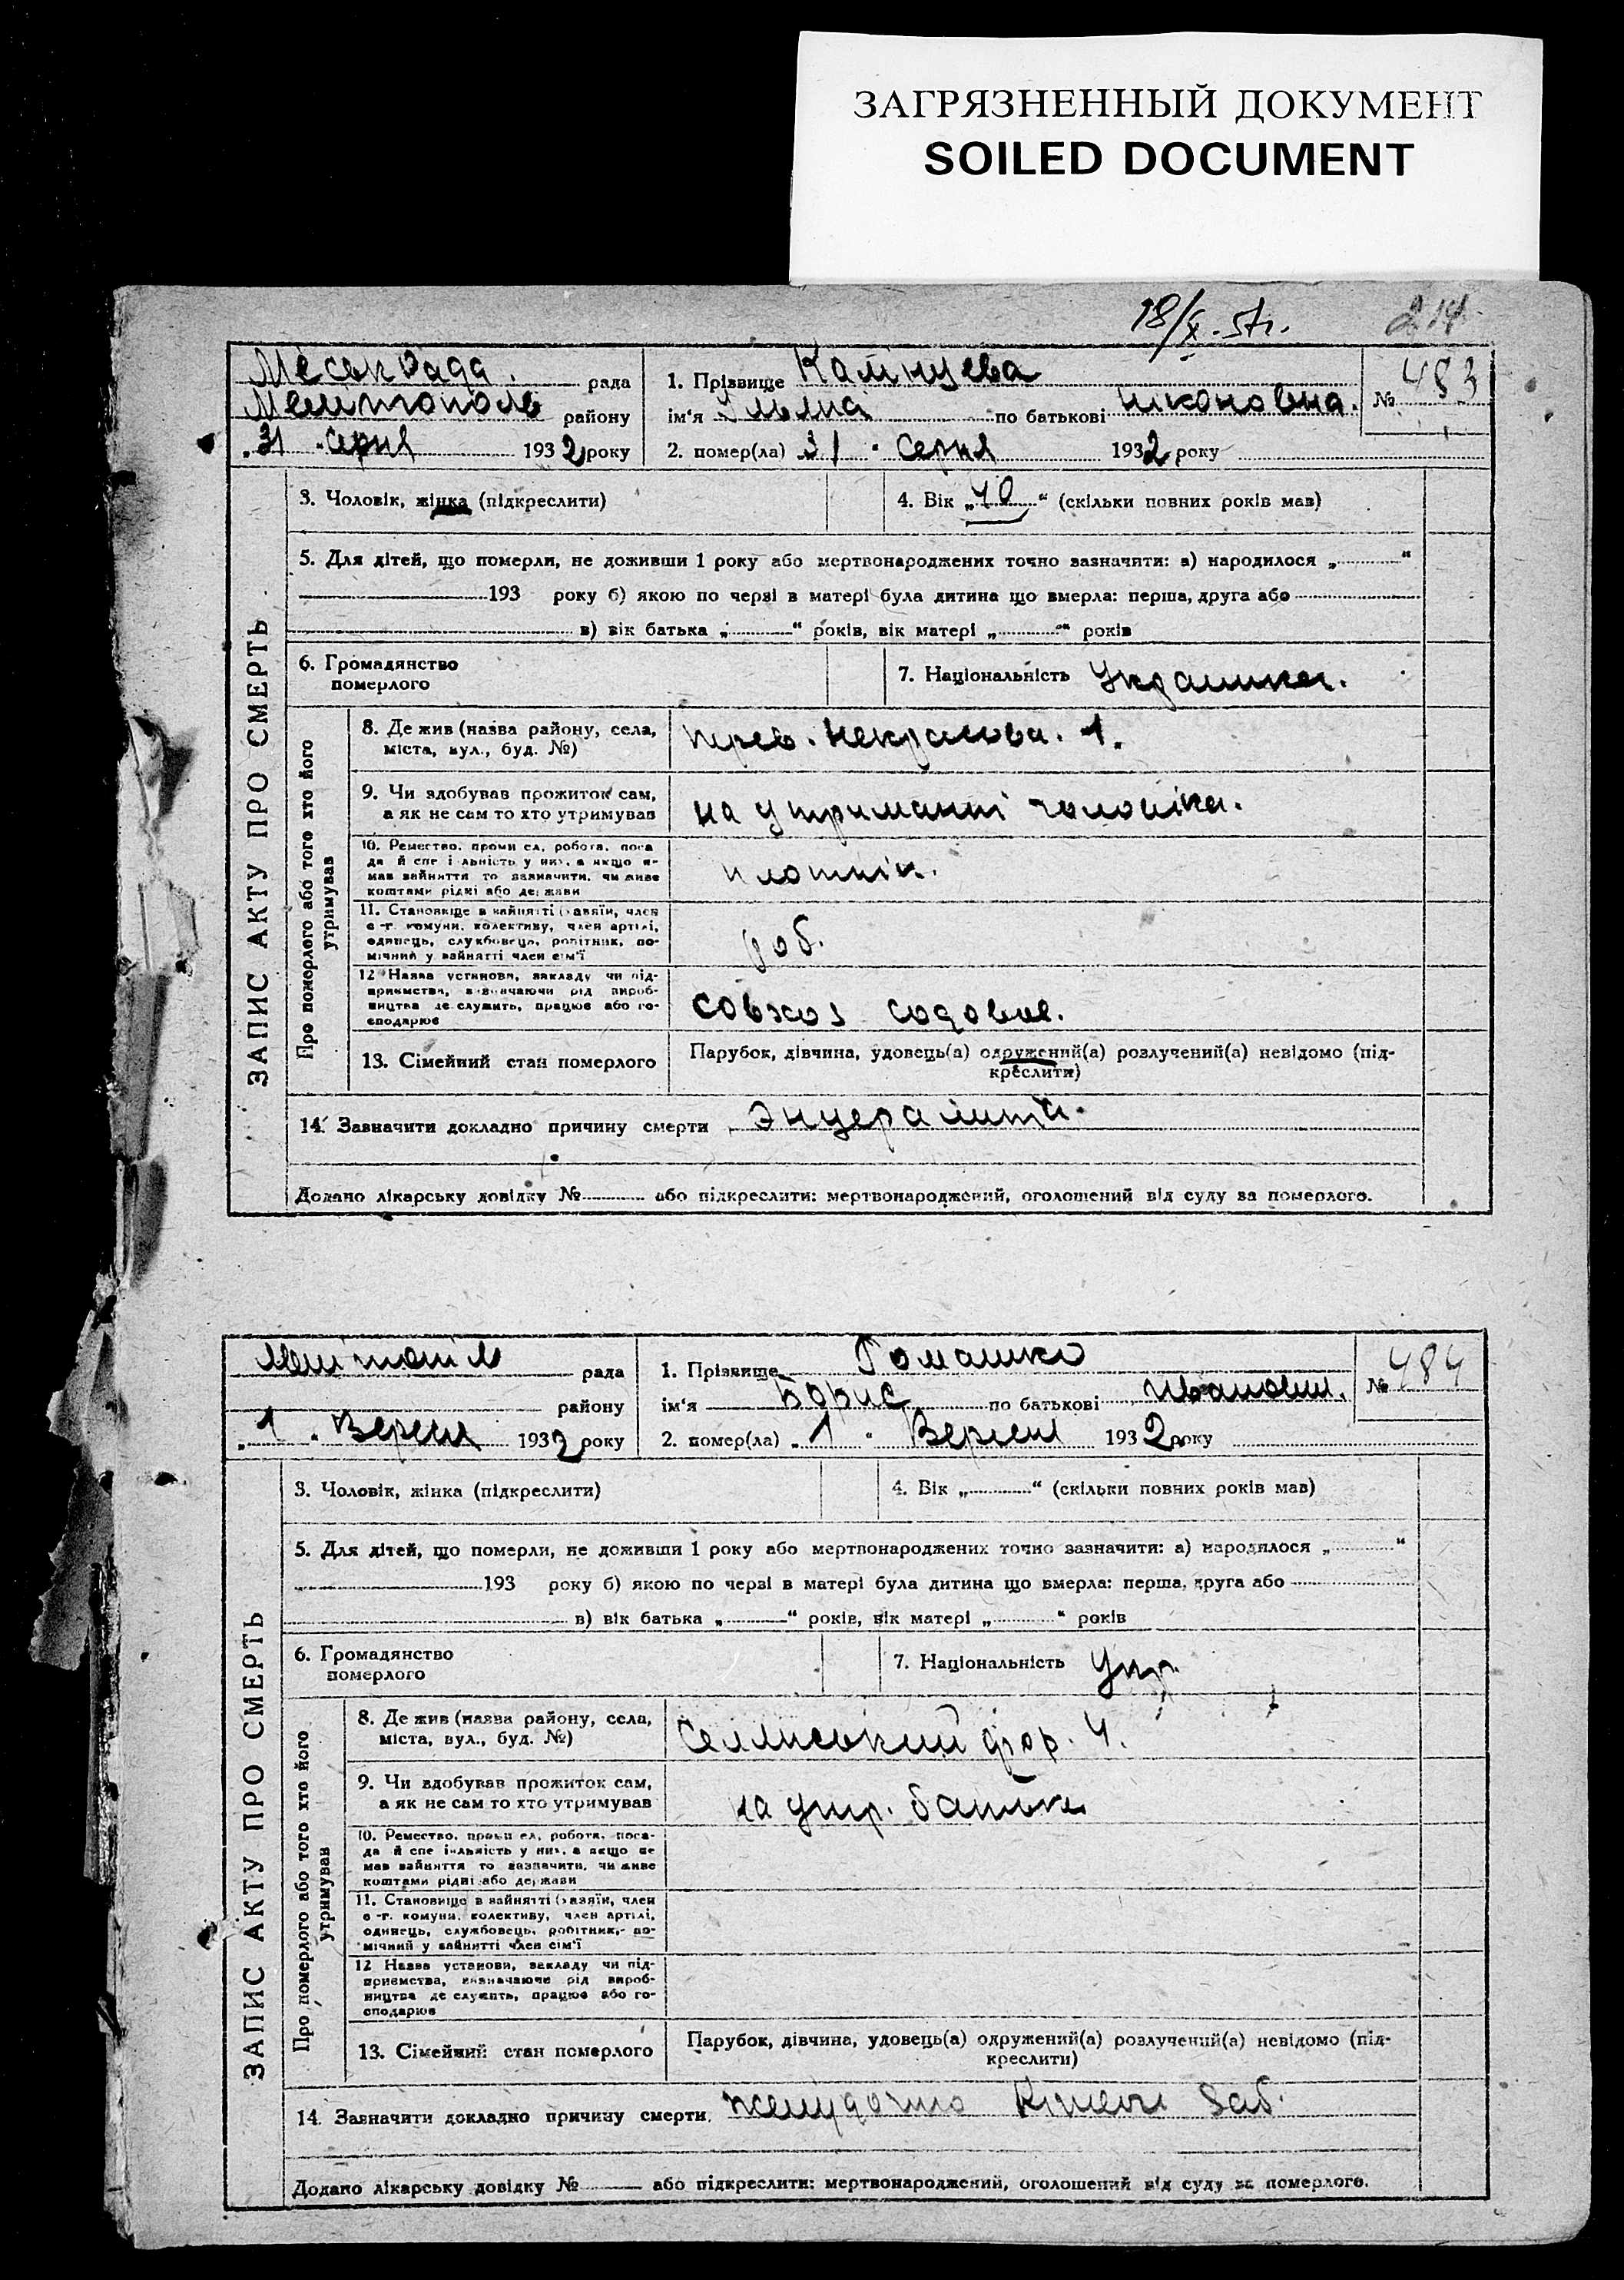 ЗАГРЯЗНЕННЫЙ ДОКУМЕНТ
SOILED DOCUMENT
18/X
214
Міськрада. рада
Мелітополь району
„31 " серпня 1932 року
1. Прізвище
ім'я по батькові Ніконовна.
№ 483
2. помер(ла) 31 " серпня 1932 року
ЗАПИС АКТУ ПРО СМЕРТЬ
3. Чоловік, жінка (підкреслити)
4. Вік „40" (скільки повних років мав)
5. Для дітей, що померли, не доживши 1 року або мертвонароджених точно зазначити: а) народилося „ "
193 року б) якою по черзі в матері була дитина що вмерла: перша, друга або
в) вік батька „ " років, вік матері „ " років
6. Громадянство
померлого
7. Національність Українка.
Про померлого або того хто його
утримував
8. Де жив (назва району, села,
міста, вул., буд. №)
Некрасова. 1.
9. Чи здобував прожиток сам,
а як не сам то хто утримував
на утриманні чоловіка.
10. Ремество, промисел, робота, поса
да й спеціяльність у них, а якщо не
мав зайняття то зазначити, чи живе
коштами рідні або держави
плотнік.
11. Становище в зайнятті (хазяїн, член
с.-г. комуни, колективу, член артілі,
одинець, службовець, робітник, по-
мічний у зайнятті член сім'ї
роб.
12 Назва установи, закладу чи під-
приємства, визначаючи рід вироб-
ництва де служить, працює або го-
сподарює
совхоз
13. Сімейний стан померлого
Парубок, дівчина, удовець(а) одружений(а) розлучений(а) невідомо (під-
креслити)
14. Зазначити докладно причину смерти
Додано лікарську довідку № або підкреслити: мертвонароджений, оголошений від суду за померлого.
рада
району
„ 1 " Вересня 1932 року
1. Прізвище Ромашко
ім'я Борис по батькові Иванович.
№ 484
2. помер(ла) „ 1 " Вересня 1932 року
ЗАПИС АКТУ ПРО СМЕРТЬ
3. Чоловік, жінка (підкреслити)
4. Вік „ " (скільки повних років мав)
5. Для дітей, що померли, не доживши 1 року або мертвонароджених точно зазначити: а) народилося „ "
193 року б) якою по черзі в матері була дитина що вмерла: перша, друга або
в) вік батька „ " років, вік матері „ " років
6. Громадянство
померлого
7. Національність Укр.
Про померлого або того хто його
утримував
8. Де жив (назва району, села,
міста, вул., буд. №)
4.
9. Чи здобував прожиток сам,
а як не сам то хто утримував
на утр. батька
10. Ремество, промисел, робота, поса-
да й спеціяльність у них, а якщо не
мав зайняття то зазначити, чи живе
коштами рідні або держави
11. Становище в зайнятті (хазяїн, член
с.-г. комуни, колективу, член артілі,
одинець, службовець, робітник, по-
мічний у зайнятті член сім'ї
12 Назва установи, закладу чи під-
приємства, визначаючи рід вироб-
ництва де служить, працює або го-
сподарює
13. Сімейний стан померлого
Парубок, дівчина, удовець(а) одружений(а) розлучений(а) невідомо (під-
креслити)
14. Зазначити докладно причину смерти. заб.
Додано лікарську довідку № або підкреслити: мертвонароджений, оголошений від суду за померлого.